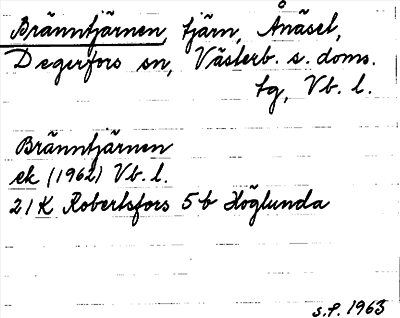 Bränntjärnen, tjärn, Ånäset,
Degerfors sn, Västerb. s. doms.
tg, Vb. l.
Bränntjärnen
ek (1962) Vb. l.
21 K Robertsfors 5 b Höglunda
s.f. 1963